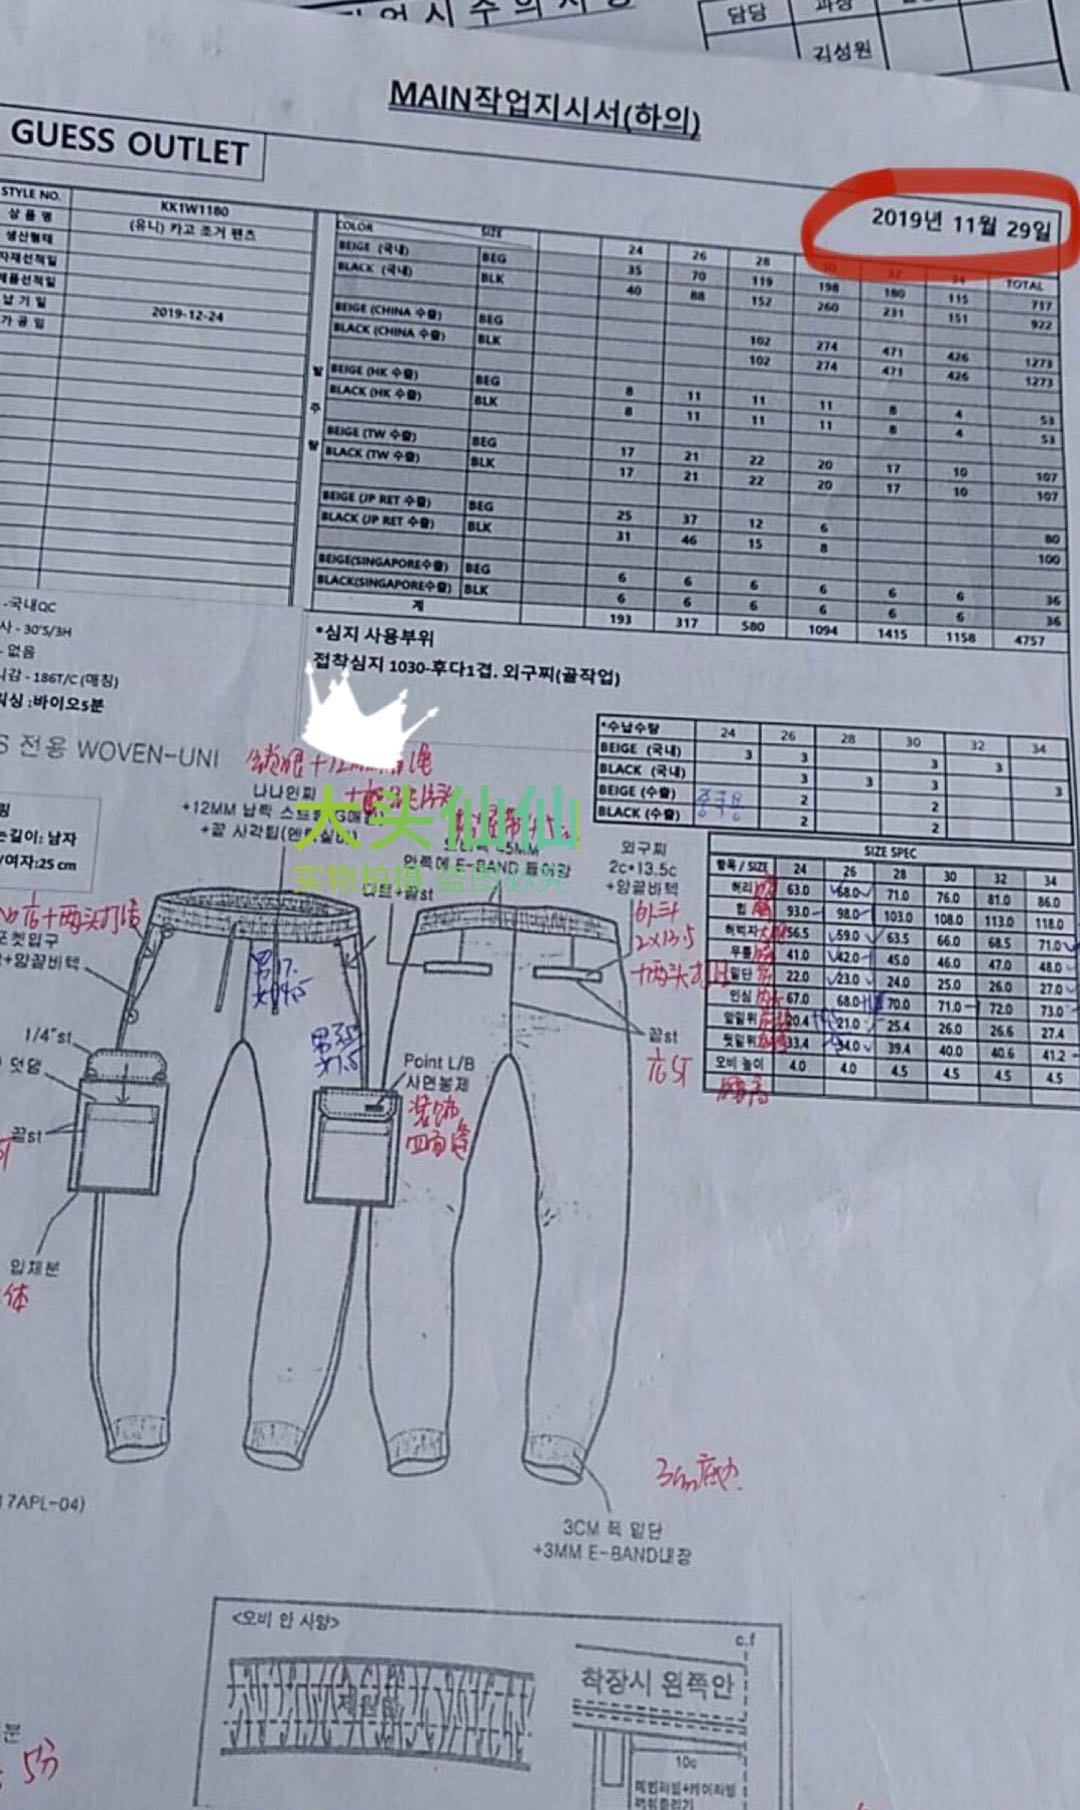 담당
김성원
MAIN작업지시서(하의)
GUESS OUTLET
2019년 11월 29일
STYLE NO. KK1W1180
상 품 명 (유니) 카고 조거 팬츠
생산형태
자재선적일
제품선적일
납 기 일 2019-12-24
가 공 일
발 주 량
COLOR SIZE 24 26 28 30 32 34 TOTAL
BEIGE (국내) BEG 35 70 119 198 180 115 717
BLACK (국내) BLK 40 88 152 260 231 151 922
BEIGE (CHINA 수출) BEG 102 274 471 426 1273
BLACK (CHINA 수출) BLK 102 274 471 426 1273
BEIGE (HK 수출) BEG 8 11 11 11 8 4 53
BLACK (HK 수출) BLK 8 11 11 11 8 4 53
BEIGE (TW 수출) BEG 17 21 22 20 17 10 107
BLACK (TW 수출) BLK 17 21 22 20 17 10 107
BEIGE (JP RET 수출) BEG 25 37 12 6 80
BLACK (JP RET 수출) BLK 31 46 15 8 100
BEIGE(SINGAPORE수출) BEG 6 6 6 6 6 6 36
BLACK(SINGAPORE수출) BLK 6 6 6 6 6 6 36
계 193 317 580 1094 1415 1158 4757
-국내QC
사 - 30'S/3H
- 없음
186T/C (매칭)
워싱 :바이오5분
*심지 사용부위
접착심지 1030-후다1겹. 외구찌(골작업)
S 전용 WOVEN-UNI
*수납수량 24 26 28 30 32 34
BEIGE (국내) 3 3 3 3
BLACK (국내) 3 3 3 3
BEIGE (수출) 2 2
BLACK (수출) 2 2
나나인찌
+12MM 납짝 스트링
+끝 사각팁
大头仙仙
实物拍摄 盗图必究
45MM
안쪽에 E-BAND
외구찌
2c*13.5c
+양끝바텍
外斗
2x13.5
+两头打
는길이: 남자
/여자:25 cm
포켓입구
+양끝바텍
SIZE SPEC
항목 / SIZE 24 26 28 30 32 34
허리 63.0 68.0 71.0 76.0 81.0 86.0
힙 93.0 98.0 103.0 108.0 113.0 118.0
허벅지 56.5 59.0 63.5 66.0 68.5 71.0
무릎 41.0 42.0 45.0 46.0 47.0 48.0
밑단 22.0 23.0 24.0 25.0 26.0 27.0
인심 67.0 68.0 70.0 71.0 72.0 73.0
앞밑위 20.4 21.0 25.4 26.0 26.6 27.4
뒷밑위 33.4 34.0 39.4 40.0 40.6 41.2
오비 높이 4.0 4.0 4.5 4.5 4.5 4.5
腰高
1/4"st
덧댐
끝st
끝st
1/16 ST
Point L/B
사면봉제
装饰
四面缝
입체분
体
3cm底边
3CM 폭 밑단
+3MM E-BAND내장
17APL-04)
<오비 안 사양>
제원단
c.f
착장시 왼쪽안
10c
메인라벨+케어라벨
5分